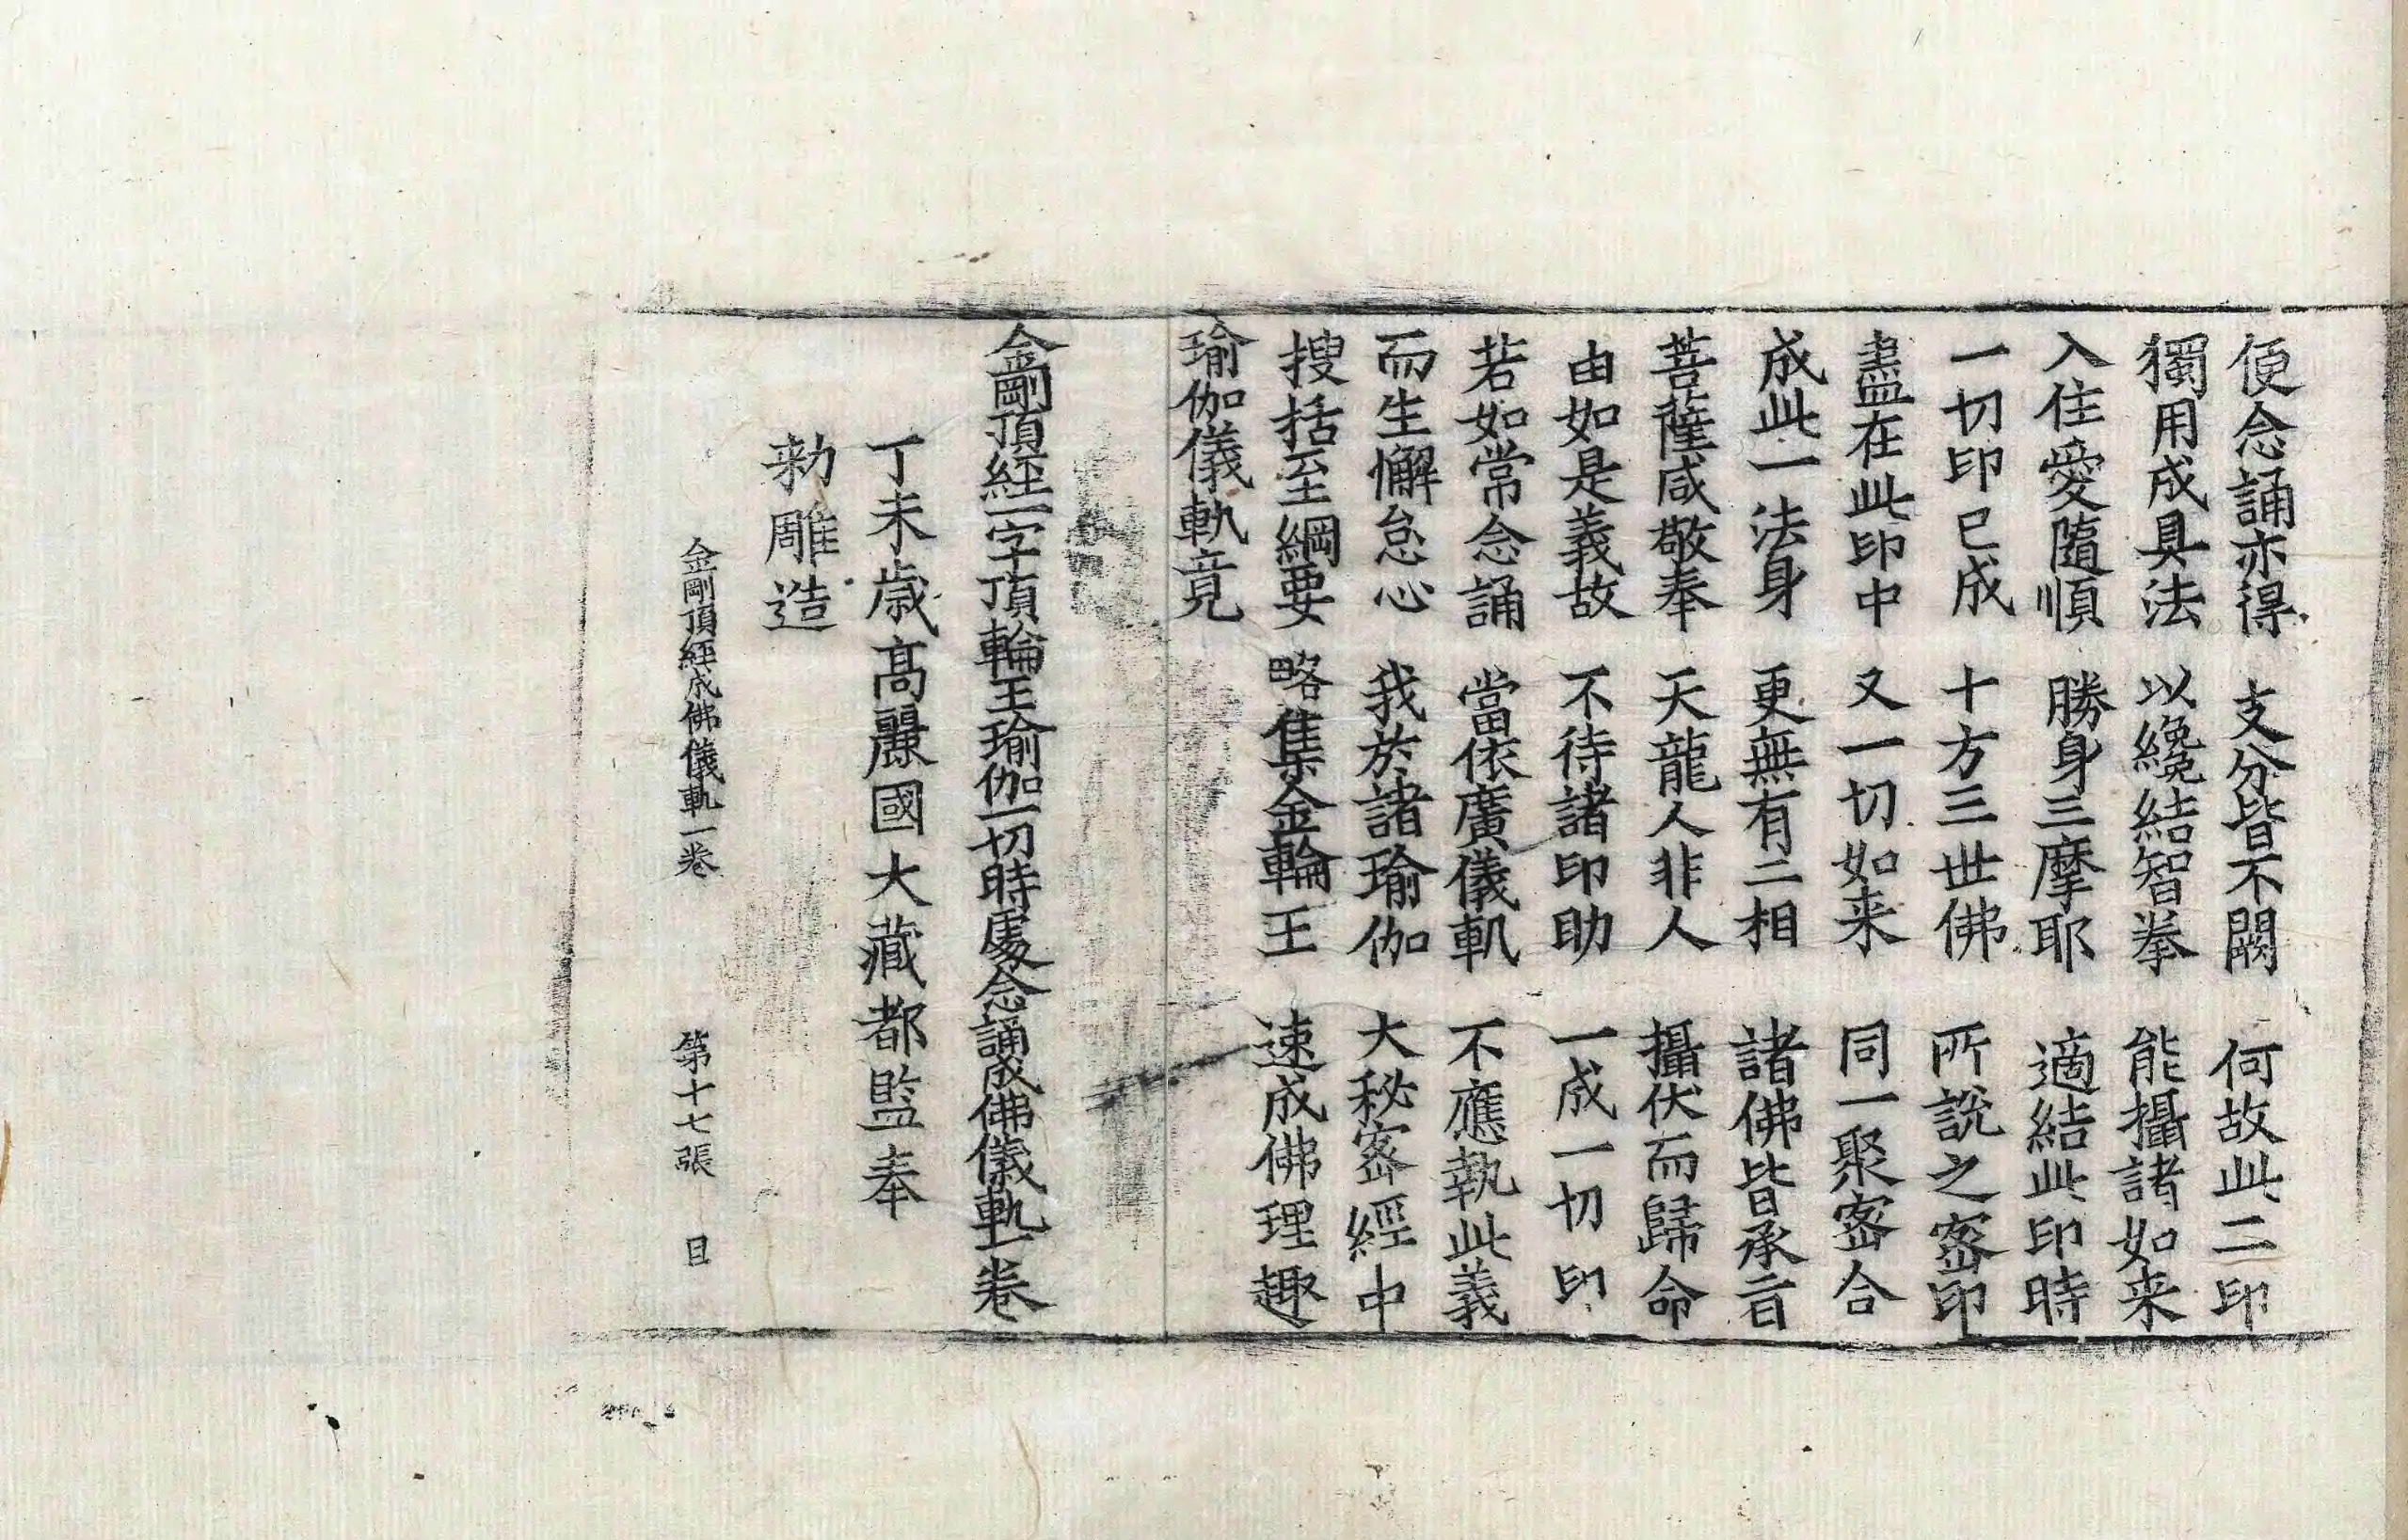 便念誦亦得　支分皆不闕　何故此二印
獨用成具法　以纔結智拳　能攝諸如来
入住愛隨順　勝身三摩耶　適結此印時
一切印已成　十方三世佛　所說之宻印
盡在此印中　又一切如来　同一聚宻合
成此一法身　更無有二相　諸佛皆承旨
菩薩咸敬奉　天龍人非人　攝伏而歸命
由如是義故　不待諸印助　一成一切印
若如常念誦　當依廣儀軌　不應執此義
而生懈怠心　我於諸瑜伽　大秘宻經中
搜括至綱要　略集金輪王　速成佛理趣
瑜伽儀軌竟
金剛頂經一字頂輪王瑜伽一切時處念誦成佛儀軌一卷
丁未歳髙麗國大藏都監奉
勑雕造
金剛頂經成佛儀軌一卷　第十七張　目